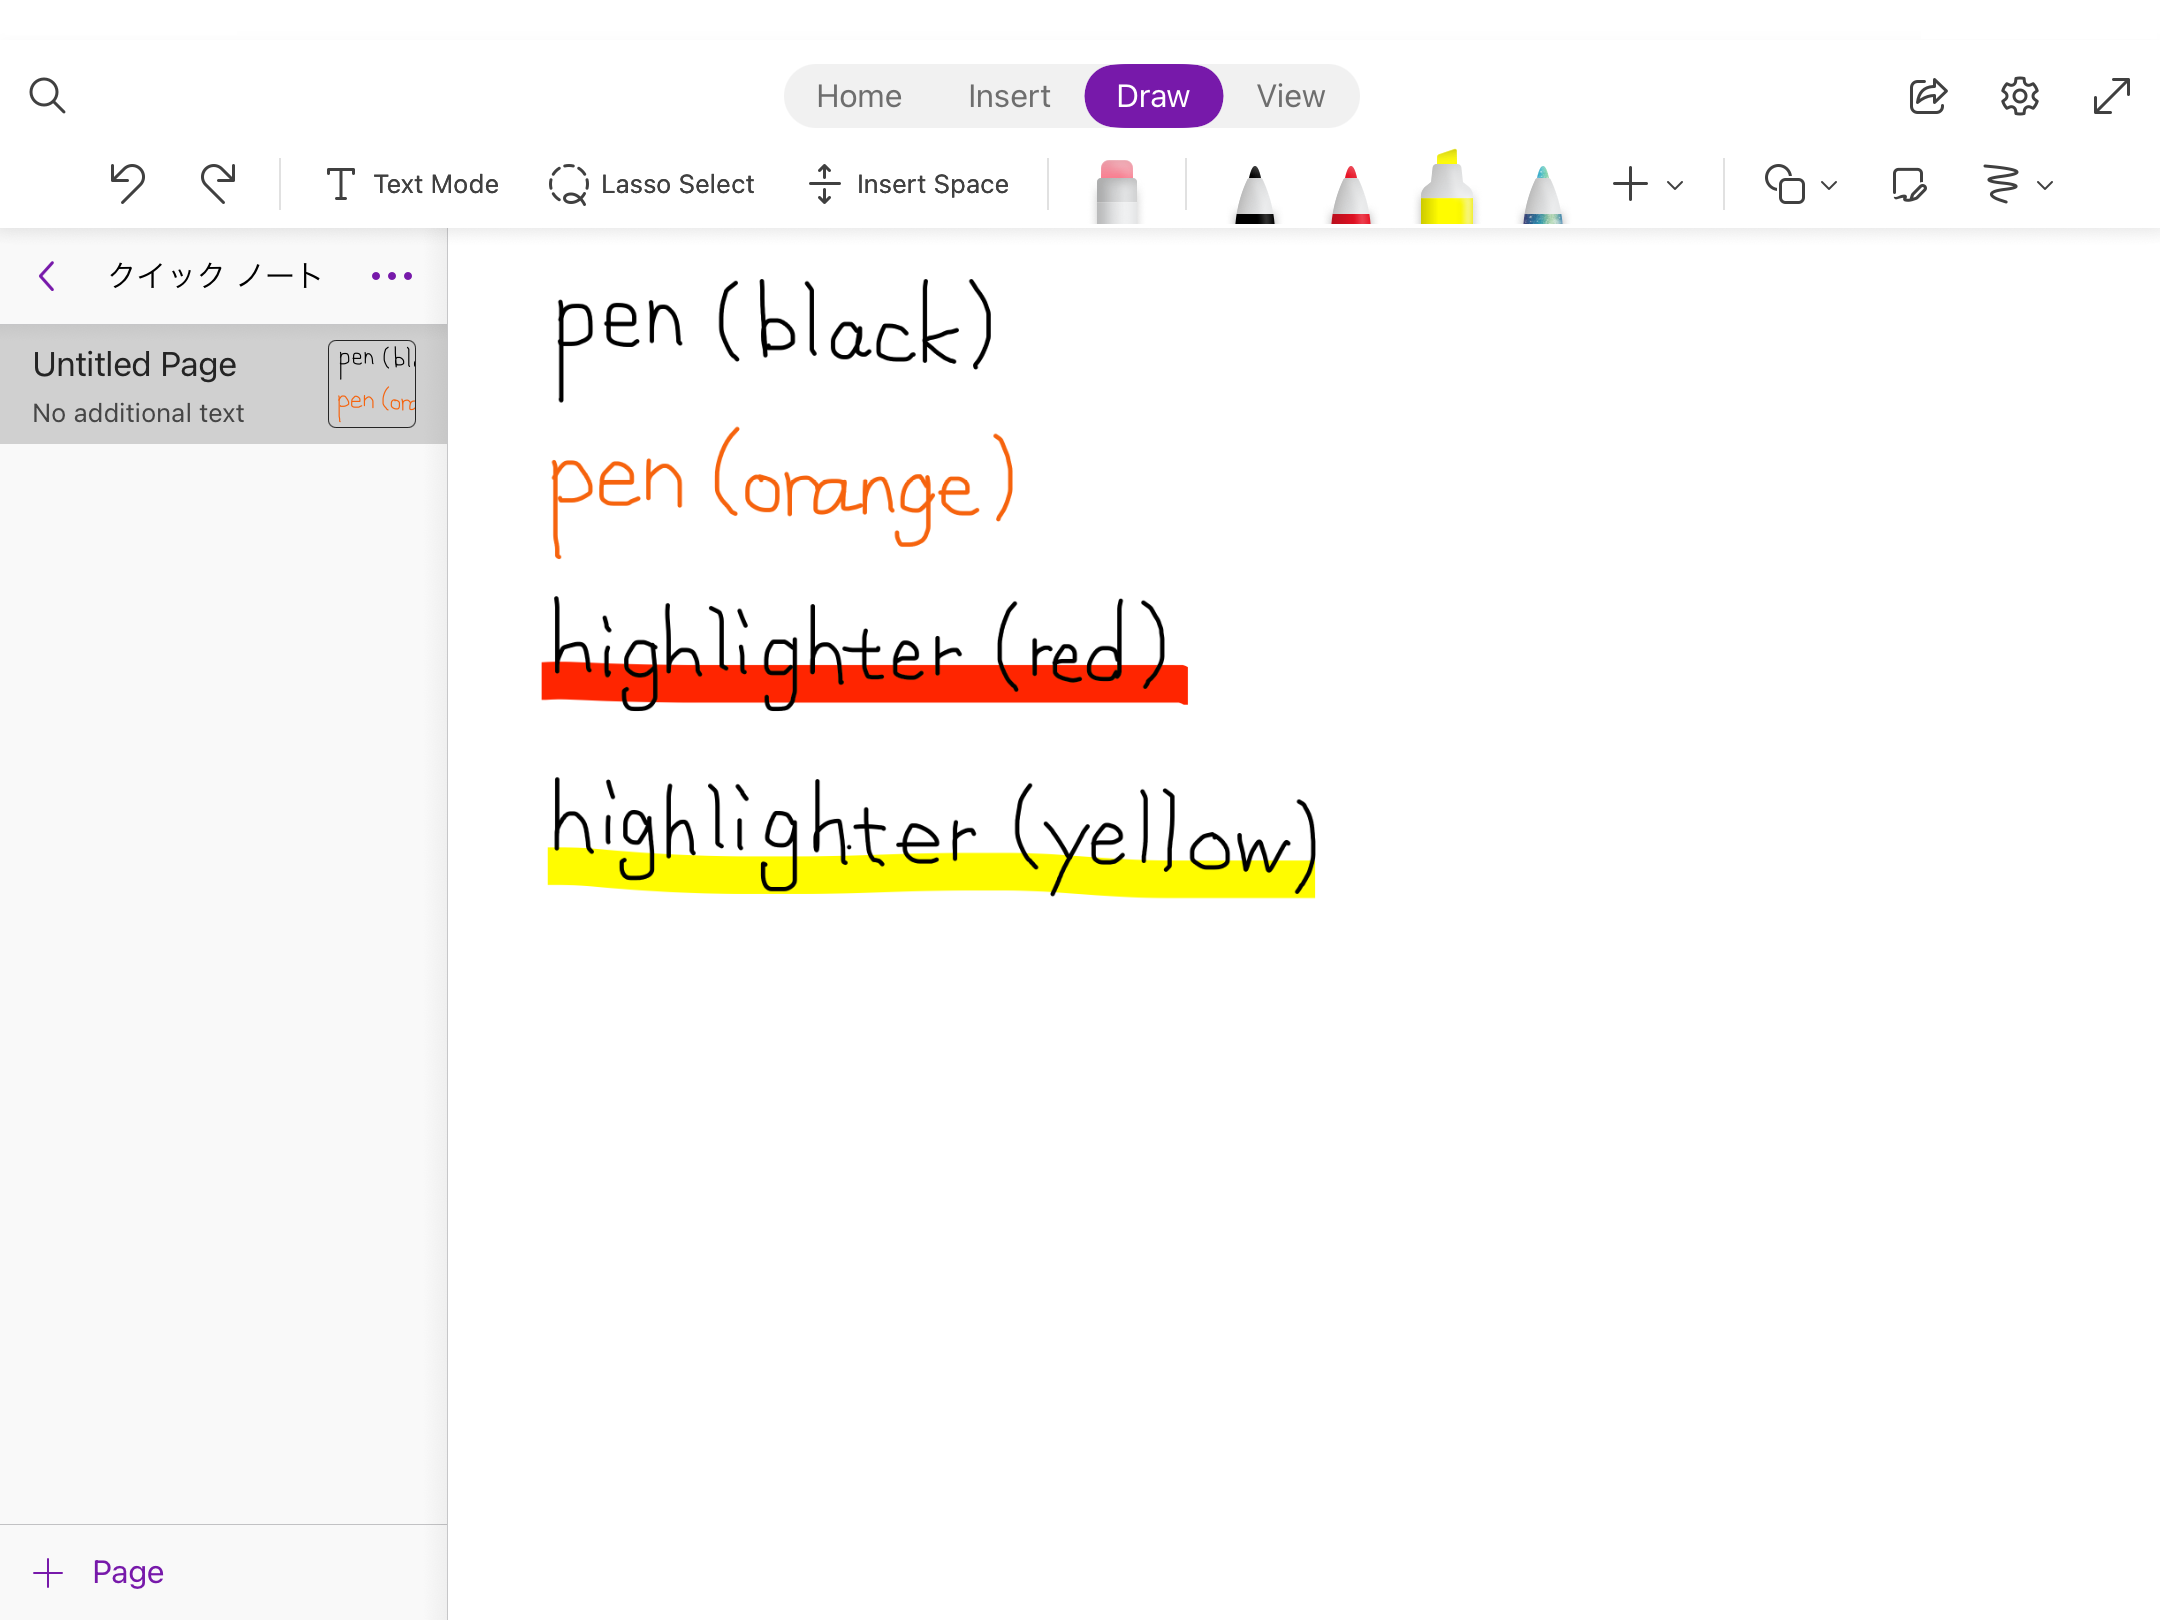 Home Insert Draw View
Text Mode Lasso Select Insert Space
クイック ノート
Untitled Page
No additional text
pen (bl
pen (ora
pen (black)
pen (orange)
highlighter (red)
highlighter (yellow)
Page